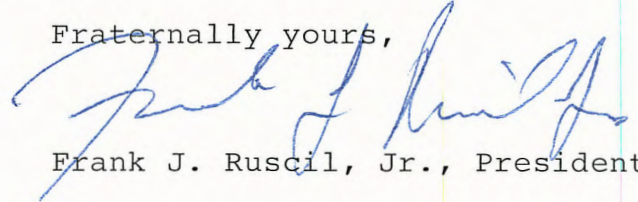 Fraternally yours,
Frank J. Ruscil, Jr.
Frank J. Ruscil, Jr., President